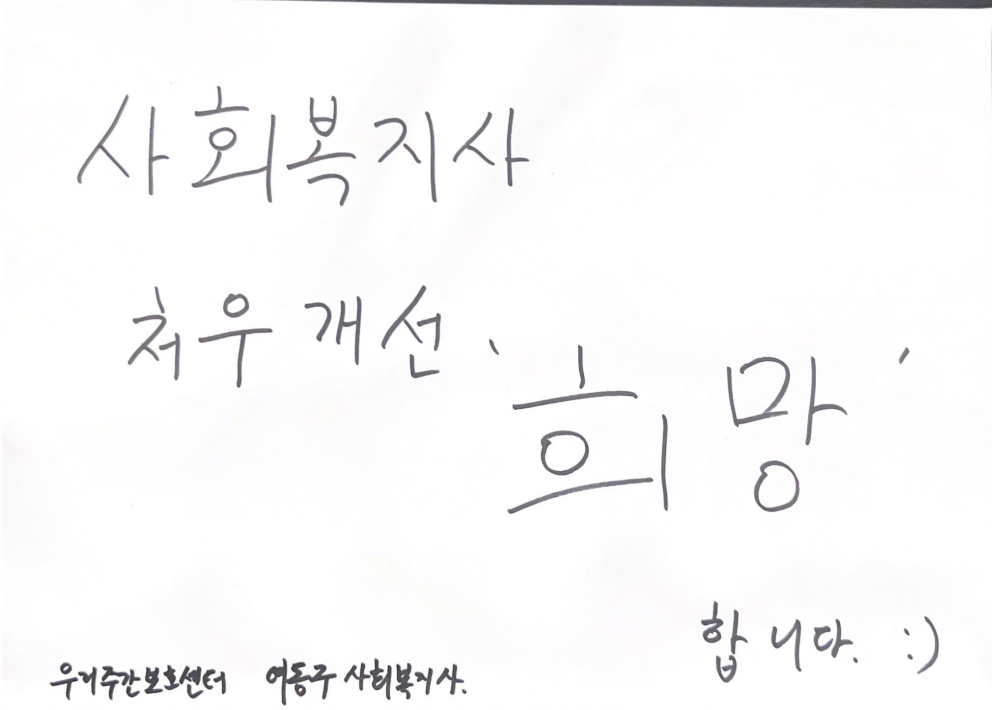 사회복지사
처우 개선 '희망'
합니다. :)
우리주간보호센터 여동구 사회복지사.